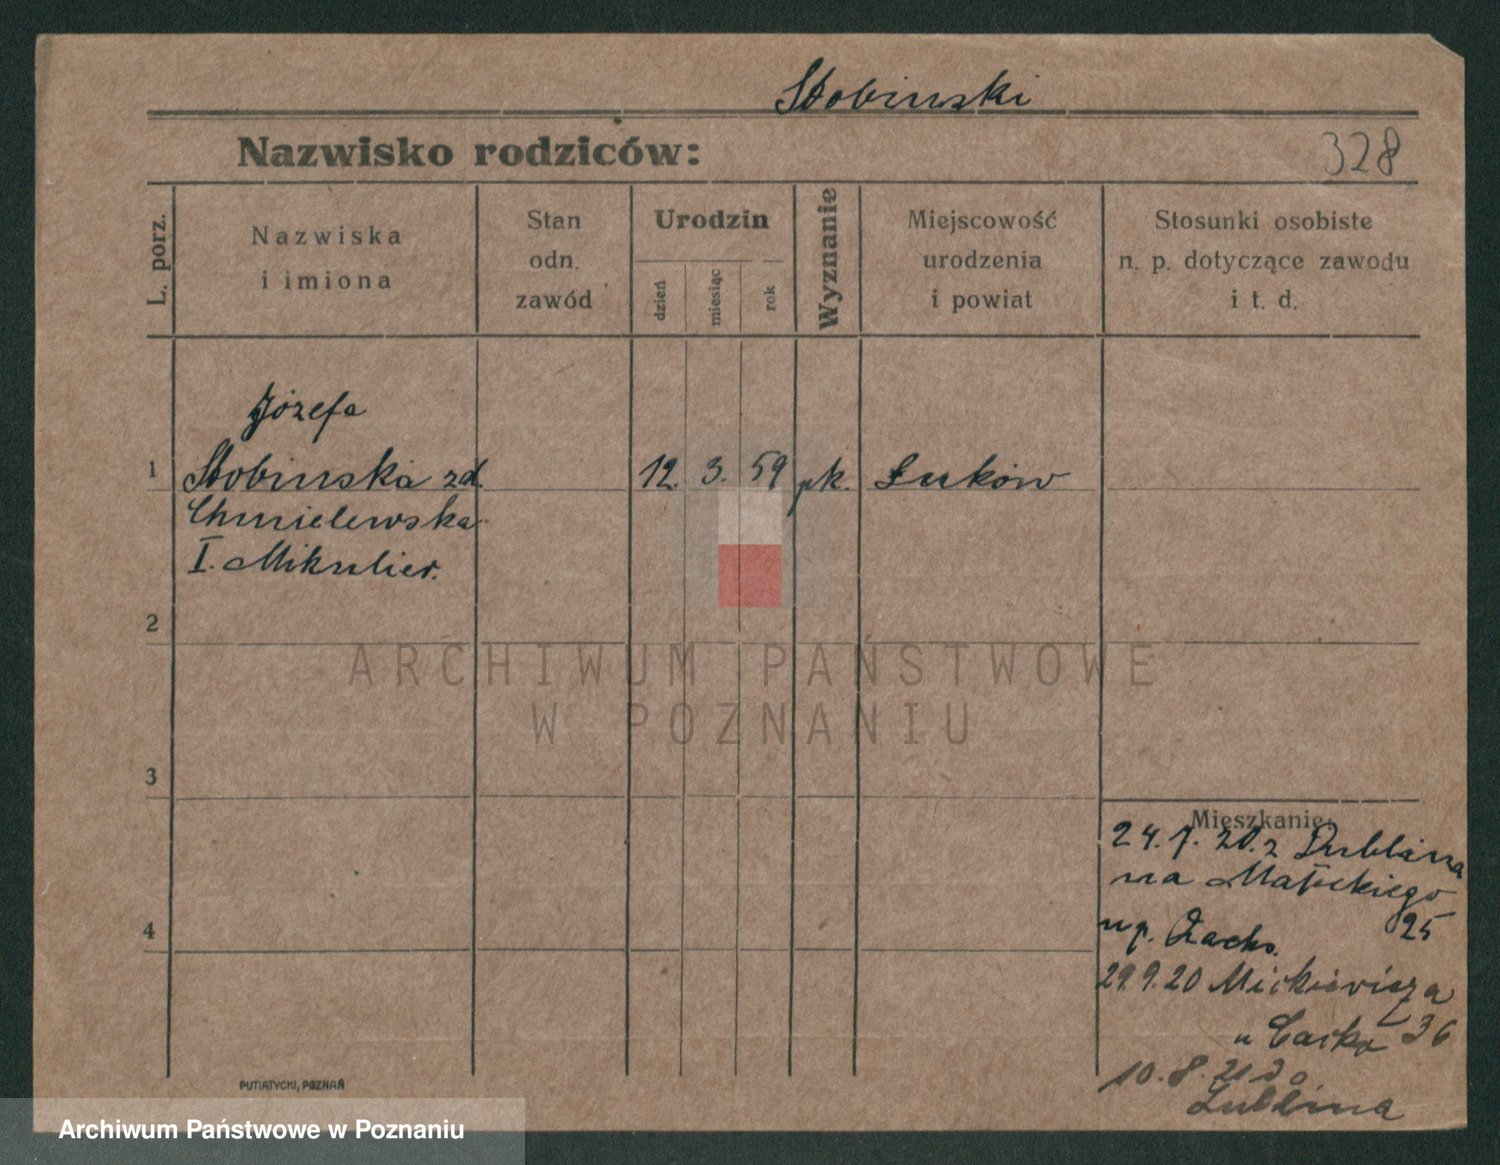 Stobinski
Nazwisko rodziców:
328
L. porz.
Nazwiska
i imiona
Stan
odn.
zawód
Urodzin
dzień
miesiąc
rok
Wyznanie
Miejscowość
urodzenia
i powiat
Stosunki osobiste
n. p. dotyczące zawodu
i t. d.
Józefa
1 Stobinska zd. 12. 3. 59 rk. Łuków
Chmielewska
I.
2
ARCHIWUM PAŃSTWOWE
W POZNANIU
3
Mieszkanie:
24. 7. 20. z Lublina
na Małeckiego
25
4
29. 9. 20 Mickiewicza
36
10. 8. 21 do
Lublina
PUTIATYCKI, POZNAŃ
Archiwum Państwowe w Poznaniu